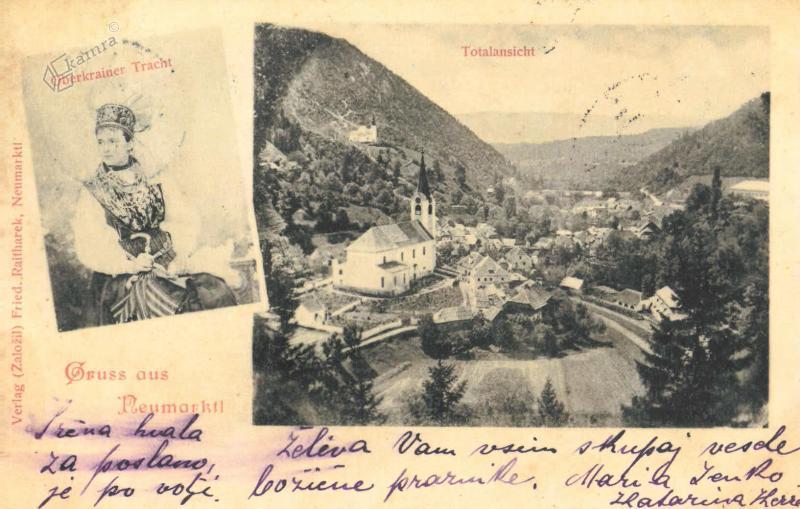 kamra
Oberkrainer Tracht
Totalansicht
Verlag (Založil) Fried. Raitharek, Neumarktl
Gruss aus
Neumarktl
Srčna hvala
za poslano,
je po volji.
Želiva Vam vsem skupaj vesele
božične praznike. Marija Jenko
Katarina